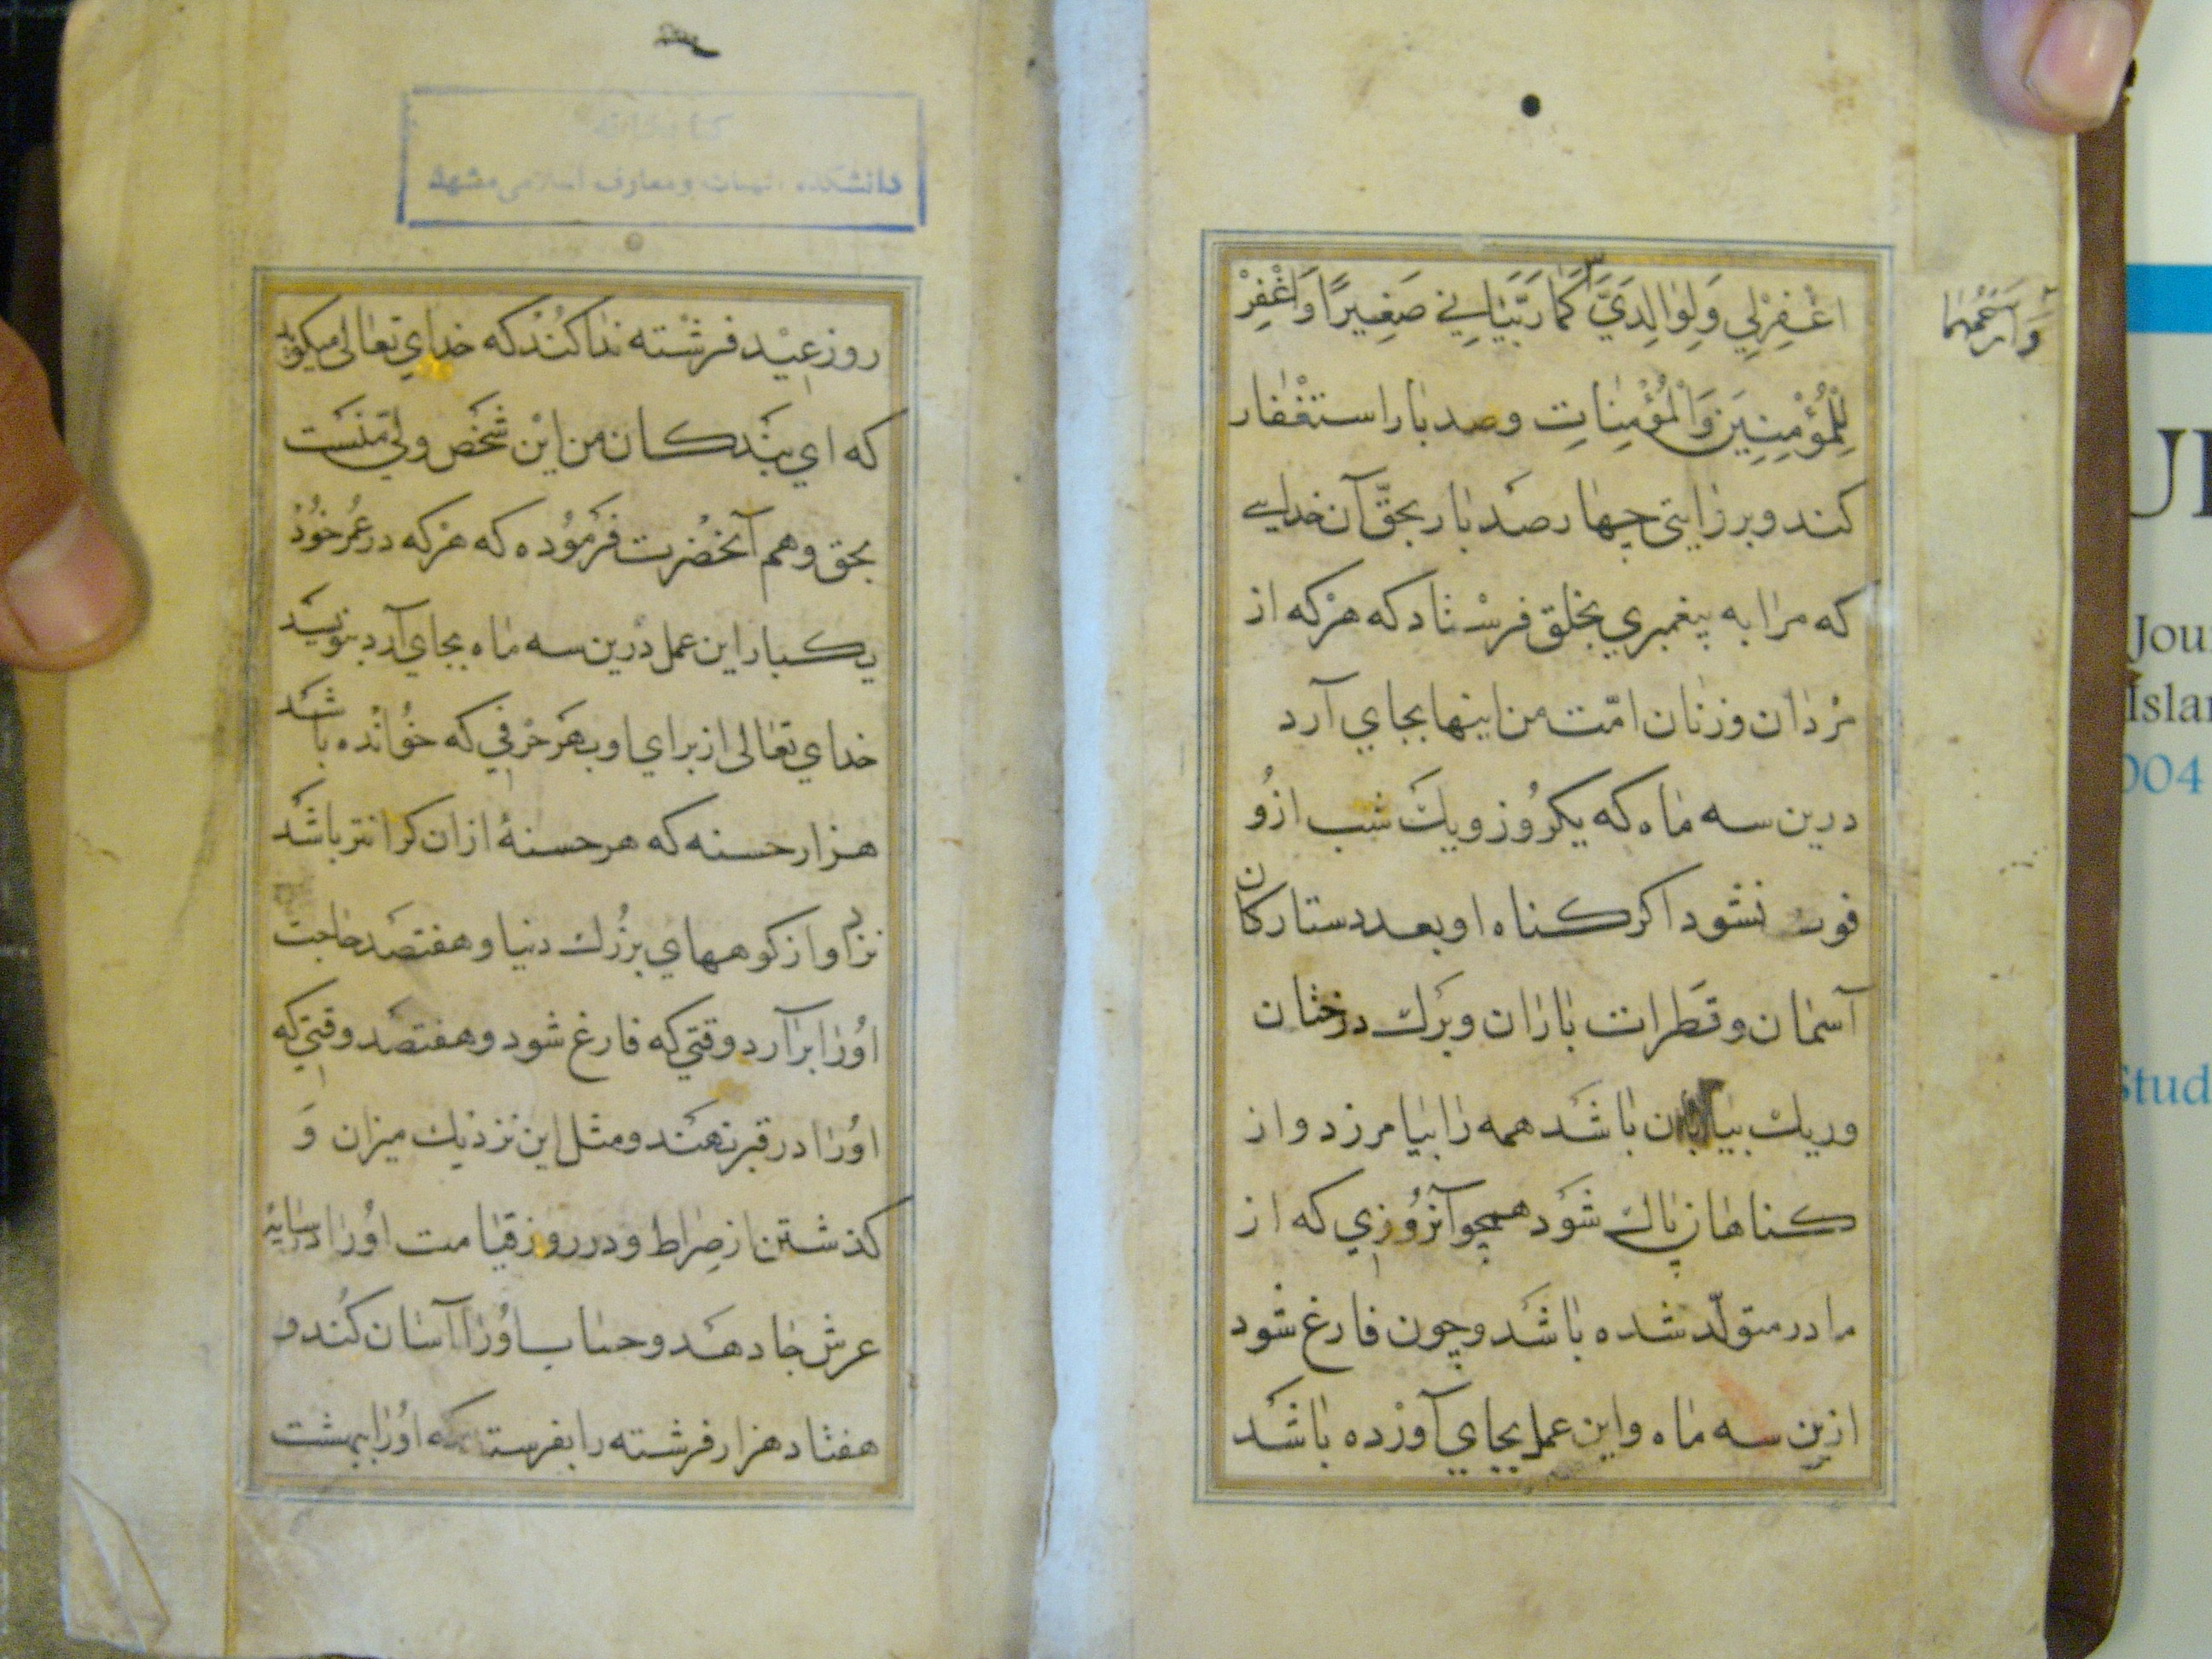 اغْفِرْلِي وَلِوٰالِدَيَّ كَمٰا رَبَّيٰانِي صَغِيرًا وَاغْفِرْ
وَارْحَمْهُمٰا
لِلْمُؤْمِنِينَ وَالْمُؤْمِنٰاتِ وصد بار استغفار
كند و بر زايتى چهار صد بار بحقّ آن خدايى
كه مرا به پيغمبري بخلق فرستاد كه هركه از
مردان و زنان امّت من اينها بجاي آرد
درين سه ماه كه يكروز و يك شب ازو
فوت نشود اكر كناه او بعدد ستاركان
آسمان و قطرات باران و برك درختان
و ريك بيابان باشد همه را بيامرزد و از
كناهان پاك شود همچو آنروزي كه از
مادر متولّد شده باشد و چون فارغ شود
ازين سه ماه و اين عمل بجاي آورده باشد
كتابخانه
دانشكده الهيات و معارف اسلامى مشهد
روز عيد فرشته ندا كند كه خداي تعالى ميكويد
كه اي بندكان من اين شخص ولي منست
بحق و هم آنحضرت فرموده كه هركه در عمر خود
يكبار اين عمل درين سه ماه بجاي آرد بنويسد
خداي تعالى از براي او بهر حرفي كه خوانده باشد
هزار حسنه كه هر حسنهٔ ازان كرانتر باشد
نزد او از كوههاي بزرك دنيا و هفتصد حاجت
اورا برآرد وقتي كه فارغ شود و هفتصد وقتي كه
اورا در قبر نهند و مثل اين نزديك ميزان و
كذشتن از صراط و در روز قيامت اورا در سايهٔ
عرش جا دهد و حساب اورا آسان كند و
هفتاد هزار فرشته را بفرستد كه اورا ببهشت